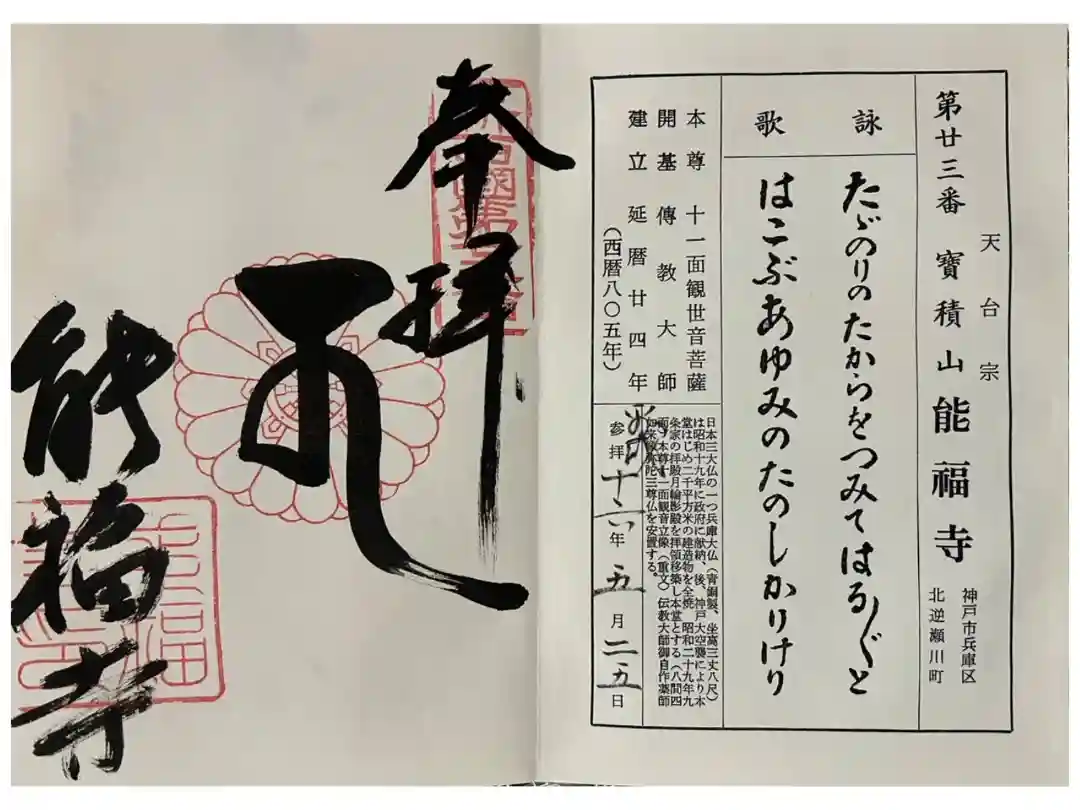 天台宗
第廿三番 寶積山 能福寺
神戸市兵庫区
北逆瀬川町
詠歌
たゞのりのたからをつみてはる〴〵と
はこぶあゆみのたのしかりけり
本尊 十一面観世音菩薩
開基 傳教大師
建立 延暦廿四年
(西暦八〇五年)
日本三大仏の一つ兵庫大仏(青銅製、坐高三丈八尺)
は昭和十九年に政府に献納、後、神戸大空襲により本
堂はじめ二千平方米の建造物を全焼 昭和二十九年九
条家の拝殿月輪影殿を拝領移築し本堂とする(八間四
面)本尊十一面観音立像(重文)伝教大師御自作薬師
如来 三尊仏を安置する。
参拝 平成十六年五月二五日
奉拝
能福寺